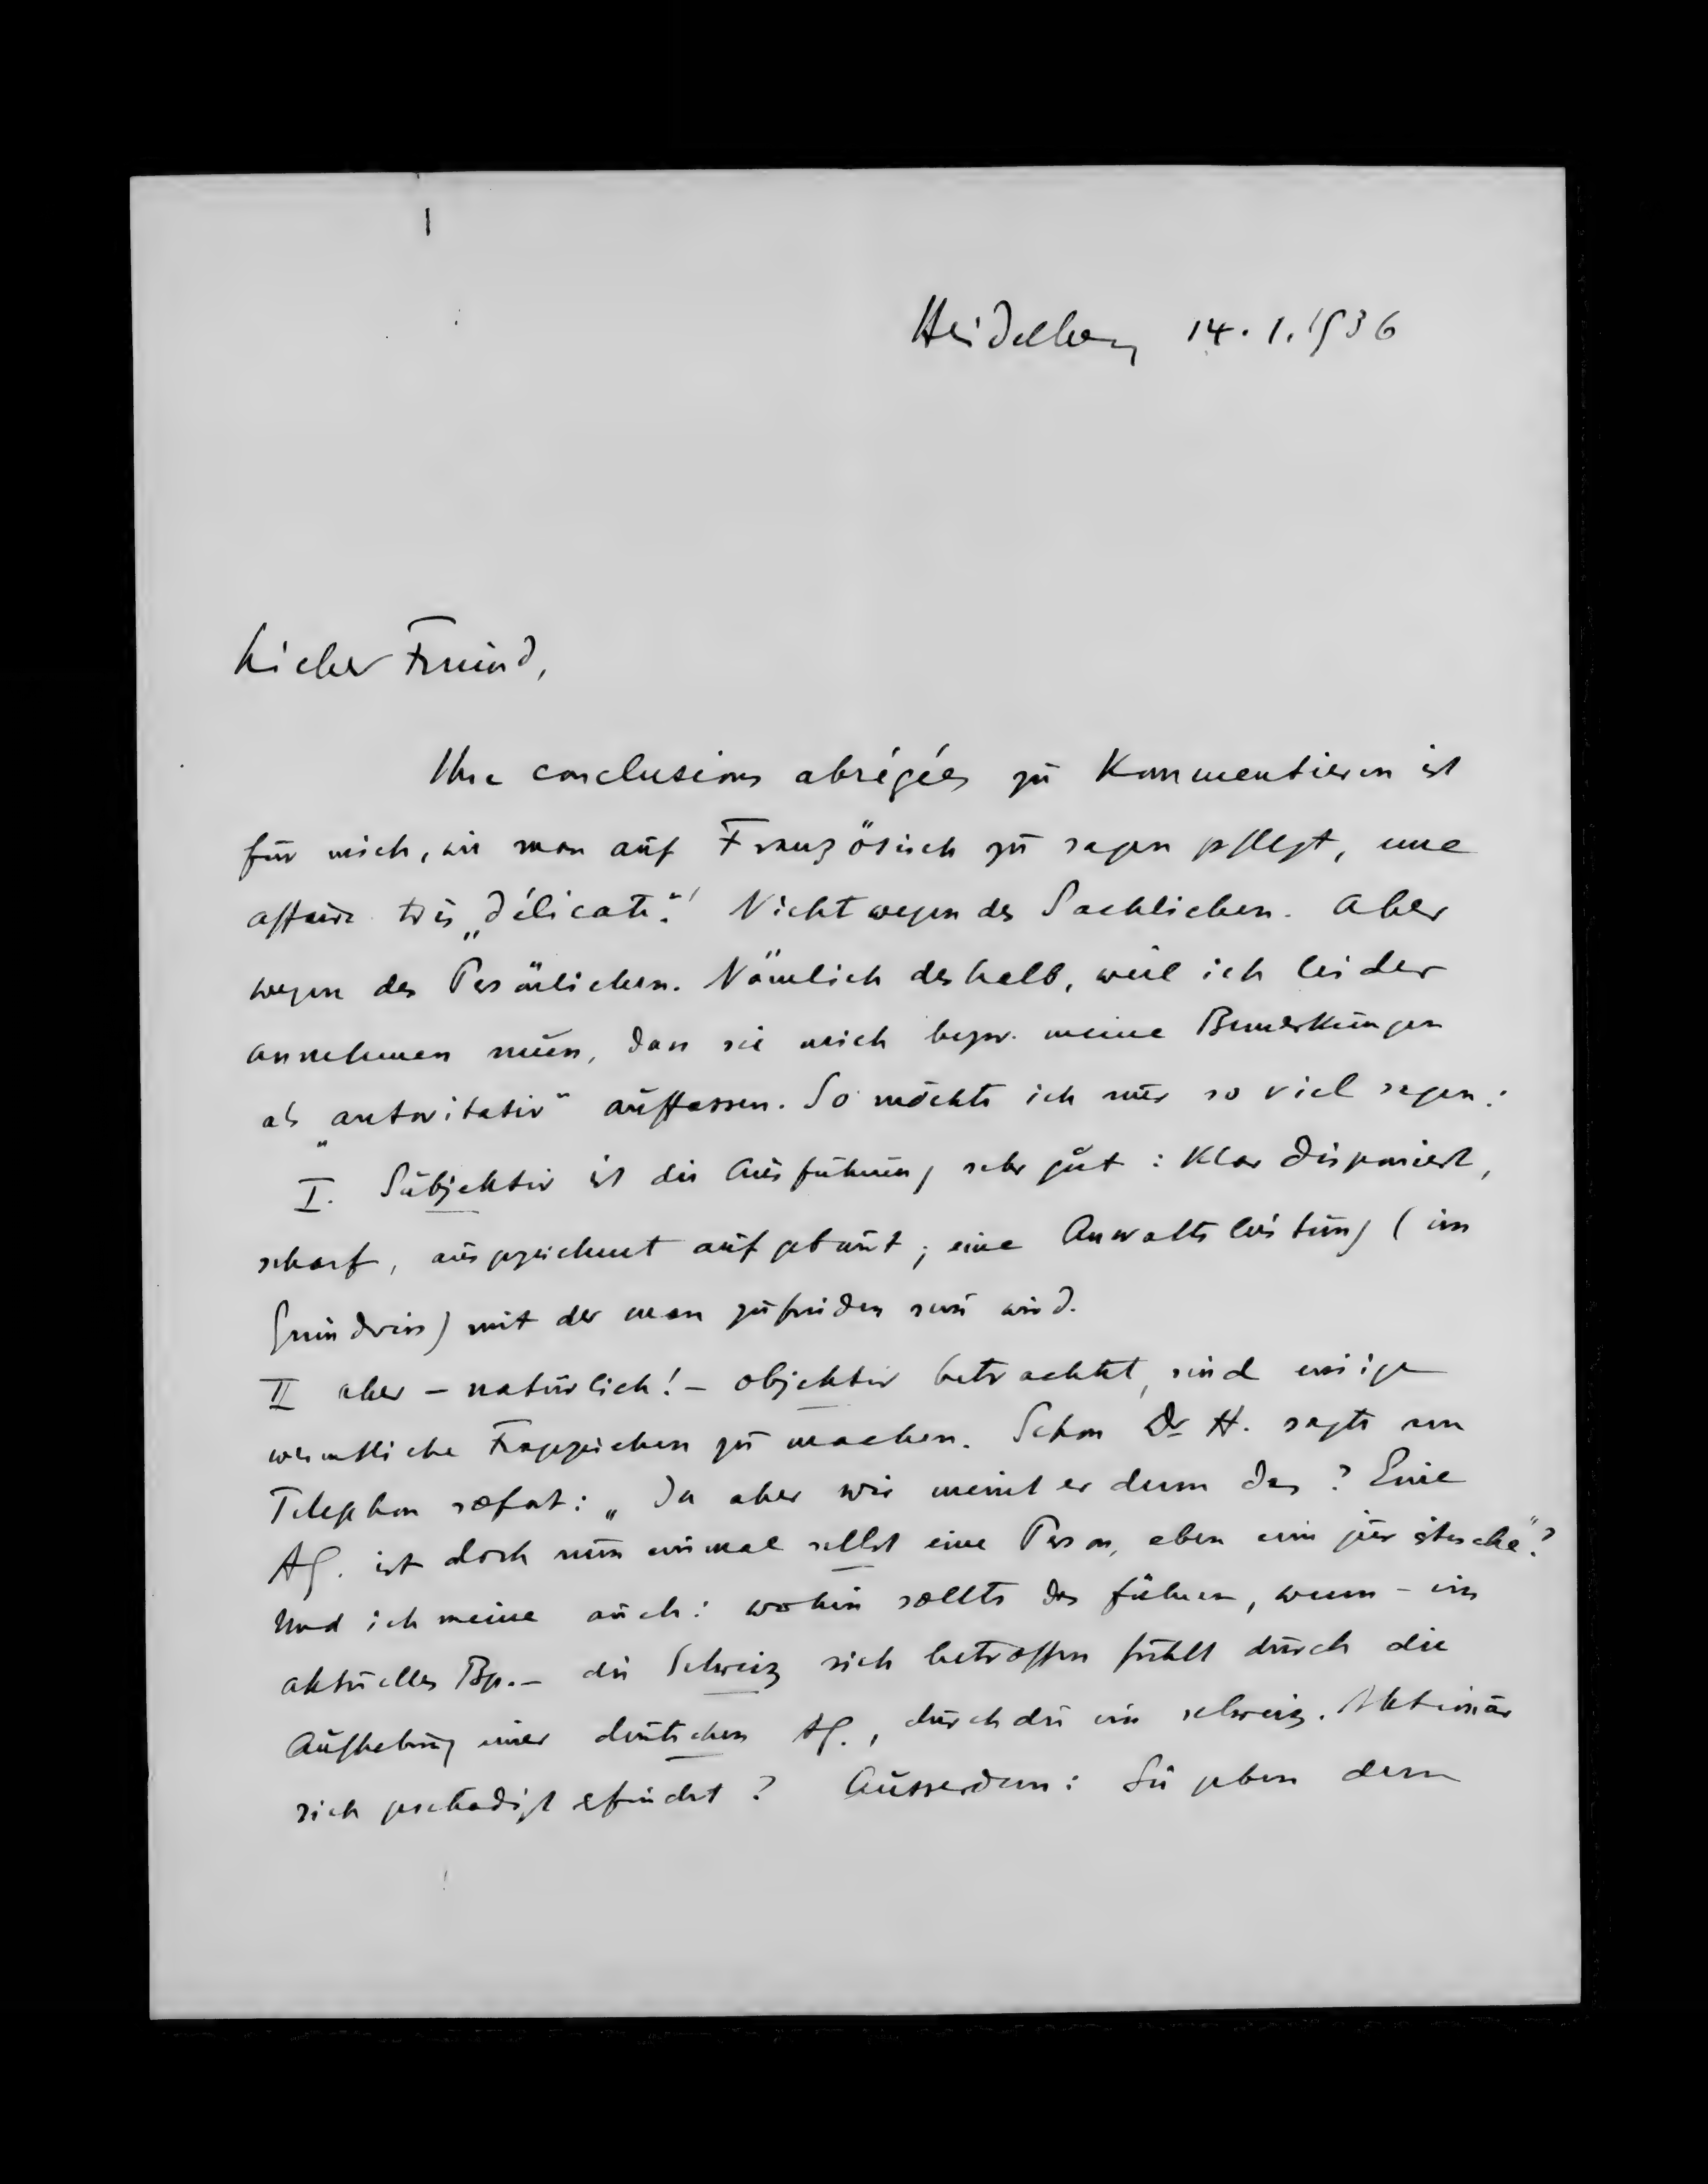 Heidelberg 14.1.1936
Lieber Freund,
Ihre conclusions abrégées zu Kommentieren ist
für mich, wie man auf Französisch zu sagen pflegt, une
affaire très „délicate“! Nicht wegen des Sachlichen. Aber
wegen des Persönlichen. Nämlich deshalb, weil ich leider
annehmen muss, dass sie mich bezw. meine Bemerkungen
als „autoritativ“ auffassen. So möchte ich nur so viel sagen:
I. Subjektiv ist die Ausführung sehr gut: Klar disponiert,
scharf, ausgezeichnet aufgebaut; eine Anwaltsleistung (im
Grundriss) mit der man zufrieden sein wird.
II aber – natürlich! – objektiv betrachtet, sind einige
wesentliche Fragezeichen zu machen. Schon Dr H. sagte am
Telephon sofort: „Ja aber wie meint er denn das? Eine
AG. ist doch nun einmal selbst eine Person, eben eine juristische“?
Und ich meine auch: wohin sollte das führen, wenn – ein
aktuelles Bsp. – die Schweiz sich betroffen fühlt durch die
Aufhebung einer deutschen AG., durch die ein schweiz. Aktionär
sich geschädigt efindet? Ausserdem: Sie geben dem